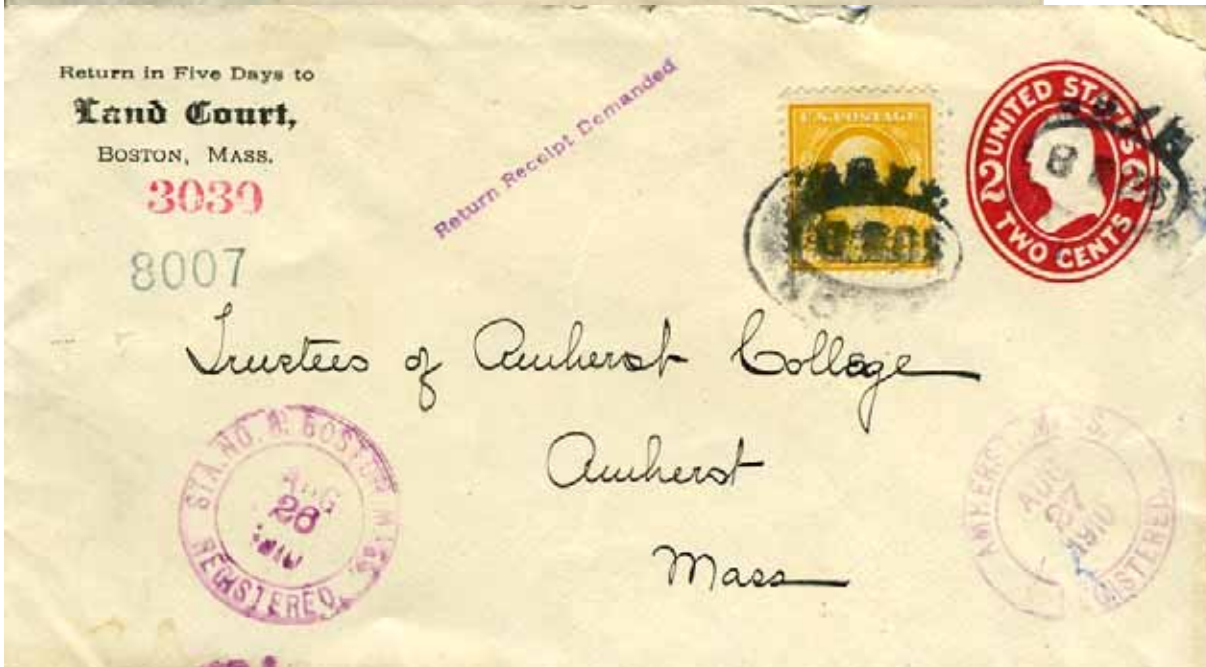 Return in Five Days to
Land Court,
BOSTON, MASS.
3039
8007
Return Receipt Demanded
U.S. POSTAGE
UNITED STATES
2 2
TWO CENTS
Trustees of Amherst College
Amherst
Mass
STA. NO. BOSTON MASS.
AUG
26
1910
REGISTERED.
AMHERST MASS.
AUG
27
1910
REGISTERED.